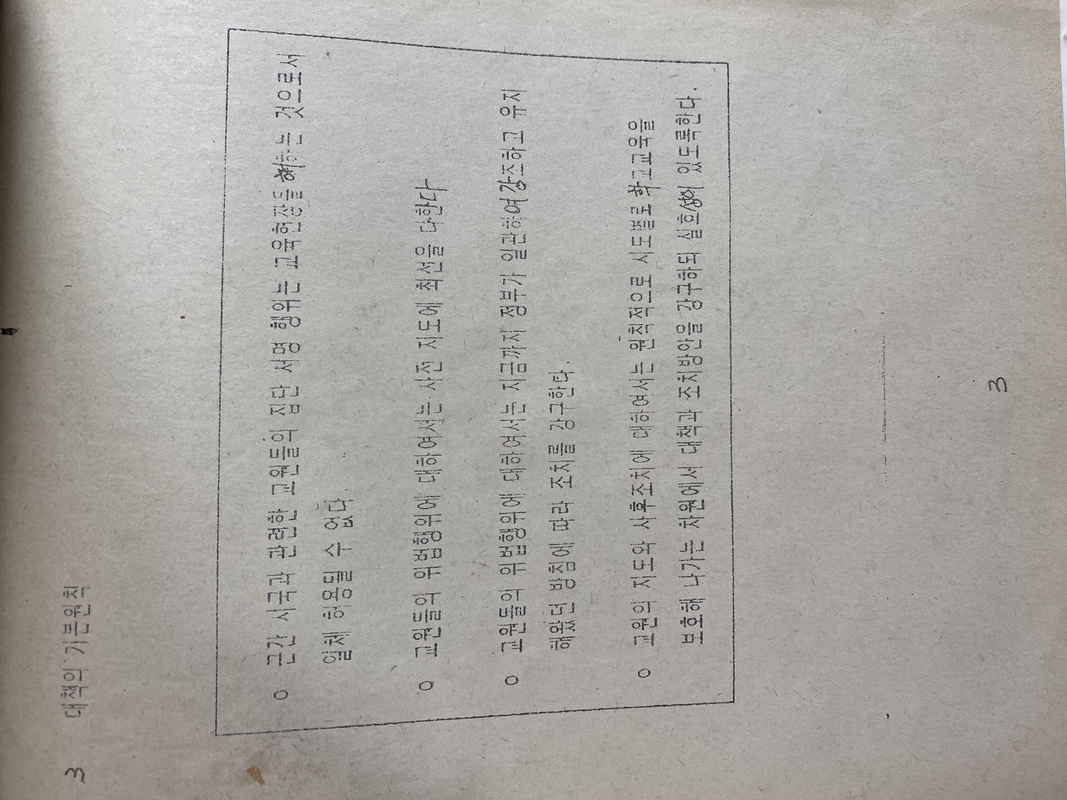 3 대책의 기본원칙
o 근간 시국과 관련한 교원들의 집단 서명 행위는 교육현장을 해하는 것으로서
일체 허용될 수 없다.
o 교원들의 위법행위에 대하여서는 사전 지도에 최선을 다한다
o 교원들의 위법행위에 대하여서는 지금까지 정부가 일관하여 강조하고 유지
해왔던 방침에 따라 조치를 강구한다.
o 교원의 지도와 사후조치에 대하여서는 원칙적으로 시도별로 학교교육을
보호해 나가는 차원에서 대책과 조치방안을 강구하되 실효성이 있도록한다.
3